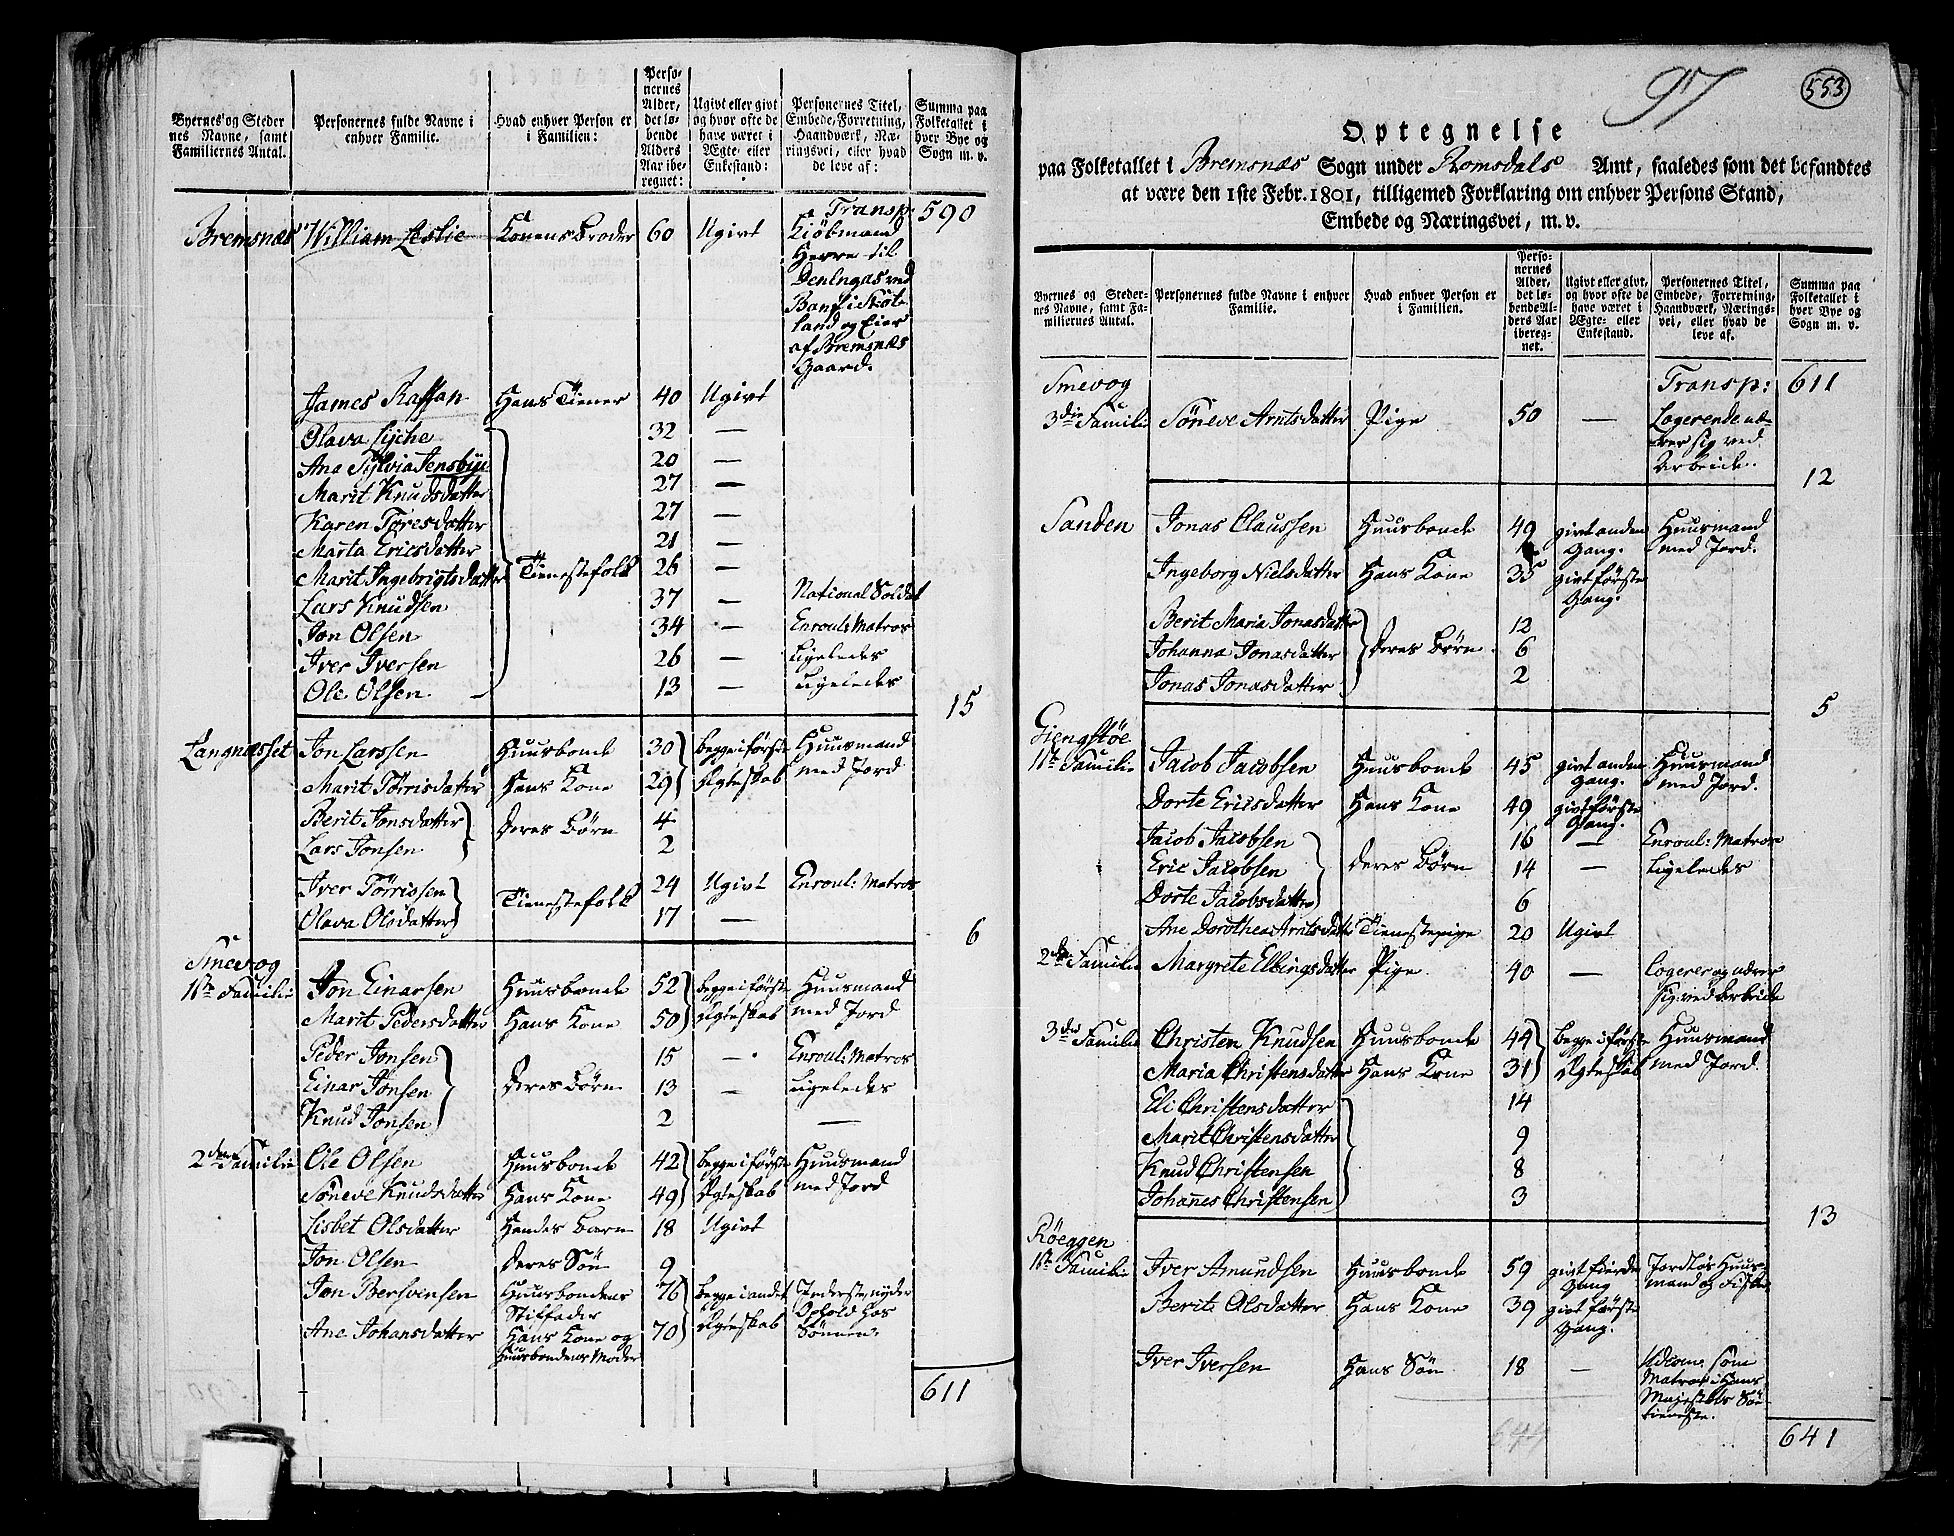 Byernes og Steder nes Navne, samt Familiernes Antal.
Personernes fulde Navne i enhver Familie.
Hvad enhver Person er i Familien:
Perso- nernes Alder, det lø- bende Alders Aar ibe- regnet:
Ugivt eller givt og hvor ofte de have været i Ægte- eller Enkestand:
Personernes Titel, Embede, Forretning, Haandværk, Næ- ringsvei, eller hvad de leve af:
Summa paa Folketallet i hver Bye og Sogn m. v.
Transp: 590
Bremsnæs William Leslie Konens Broder 60 Ugivt Kiöbmand
Herre til
Deningas ved
Banf i Skot-
land og Eier
af Bremsnæs
Gaard.
James Raffan Hans Tiener 40 Ugivt
Olava Lyche 32 —
Ana Sylvia Jensbye 20 —
Marit Knudsdatter 27 —
Karen Toresdatter 27 —
Marta Ericsdatter 21 —
Marit Ingebrigtsdatter Tienestefolk 26 —
Lars Knudsen 37 — National Soldat
Jon Olsen 34 — Enroul: Matros
Iver Iversen 26 — Ligeledes
Ole Olsen 13 — Ligeledes
15
Langnæsset Jon Larssen Huusbonde 30 begge i første Huusmand
Marit Törrisdatter Hans Kone 29 Ægteskab med Jord
Berit Jonsdatter Deres Börn 4
Lars Jonsen 2
Iver Törrissen Tienestefolk 24 Ugivt Enroul: Matros
Olava Olsdatter 17 —
6
Smevog
1ste Familie Jon Einarsen Huusbonde 52 begge i første Huusmand
Marit Pedersdatter Hans Kone 50 Ægteskab med Jord
Peder Jonsen 15 — Enroul: Matros
Einar Jonsen Deres Börn 13 — Ligeledes
Knud Jonsen 2 —
2den Familie Ole Olsen Huusbonde 42 begge i første Huusmand
Söneve Knudsdatter Hans Kone 49 Ægteskab med Jord
Lisbet Olsdatter Hendes Barn 18 Ugivt
Jon Olsen Deres Sön 9
Jon Bersvinsen Huusbondens Stiffader 76 begge i andet Inderste, nyder
Ane Johansdatter Hans Kone og 70 Ægteskab Ophold hos Sönnen.
Huusbondens Moder
611
97
553
Optegnelse
paa Folketallet i Bremsnæs Sogn under Romsdals Amt, saaledes som det befandtes
at være den 1ste Febr. 1801, tilligemed Forklaring om enhver Persons Stand,
Embede og Næringsvei, m. v.
Byernes og Steder- nes Navne, samt Fa- miliernes Antal.
Personernes fulde Navne i enhver Familie.
Hvad enhver Person er i Familien.
Perso- nernes Alder, det lø- bende Al- ders Aar ibereg- net.
Ugivt eller givt, og hvor ofte de have været i Ægte- eller Enkestand.
Personernes Titel, Embede, Forretning, Haandværk, Nærings- vei, eller hvad de leve af.
Summa paa Folketallet i hver Bye og Sogn m. v.
Smevog Transp: 611
3die Familie Söneve Arntsdatter Pige 50 — Logerende næ-
rer sig ved
Arbeide.
12
Sanden Jonas Claussen Huusbonde 49 givt anden Gang. Huusmand med Jord.
Ingeborg Nielsdatter Hans Kone 35 givt første Gang.
Berit Maria Jonasdatter 12
Johanna Jonasdatter Deres Börn 6
Jonas Jonasdatter 2
5
Giengstöe
1ste Familie Jacob Jacobsen Huusbonde 45 givt anden Gang. Huusmand med Jord.
Dorte Ericsdatter Hans Kone 49 givt første Gang.
Jacob Jacobsen 16 — Enroul: Matros
Eric Jacobsen Deres Börn 14 — Ligeledes
Dorte Jacobsdatter 6
Ane Dorothea Arntsdatter Tienestepige 20 Ugivt
2den Familie Margrete Ellingsdatter Pige 40 — Logerer og nærer
sig ved Arbeide
3die Familie Christen Knudsen Huusbonde 44 begge i første Huusmand
Maria Christensdatter Hans Kone 31 Ægteskab med Jord
Eli Christensdatter 14
Marit Christensdatter 9
Knud Christensen 8
Johannes Christensen 3
13
Röeggen
1ste Familie Iver Amundsen Huusbonde 59 givt fierde Gang Jordløs Huus-
mand og Fisker
Berit Olsdatter Hans Kone 39 givt første Gang.
Iver Iversen Hans Sön 18 — Udcom. som
Matros i Hans
Majestæts Söe
tieneste.
644
641